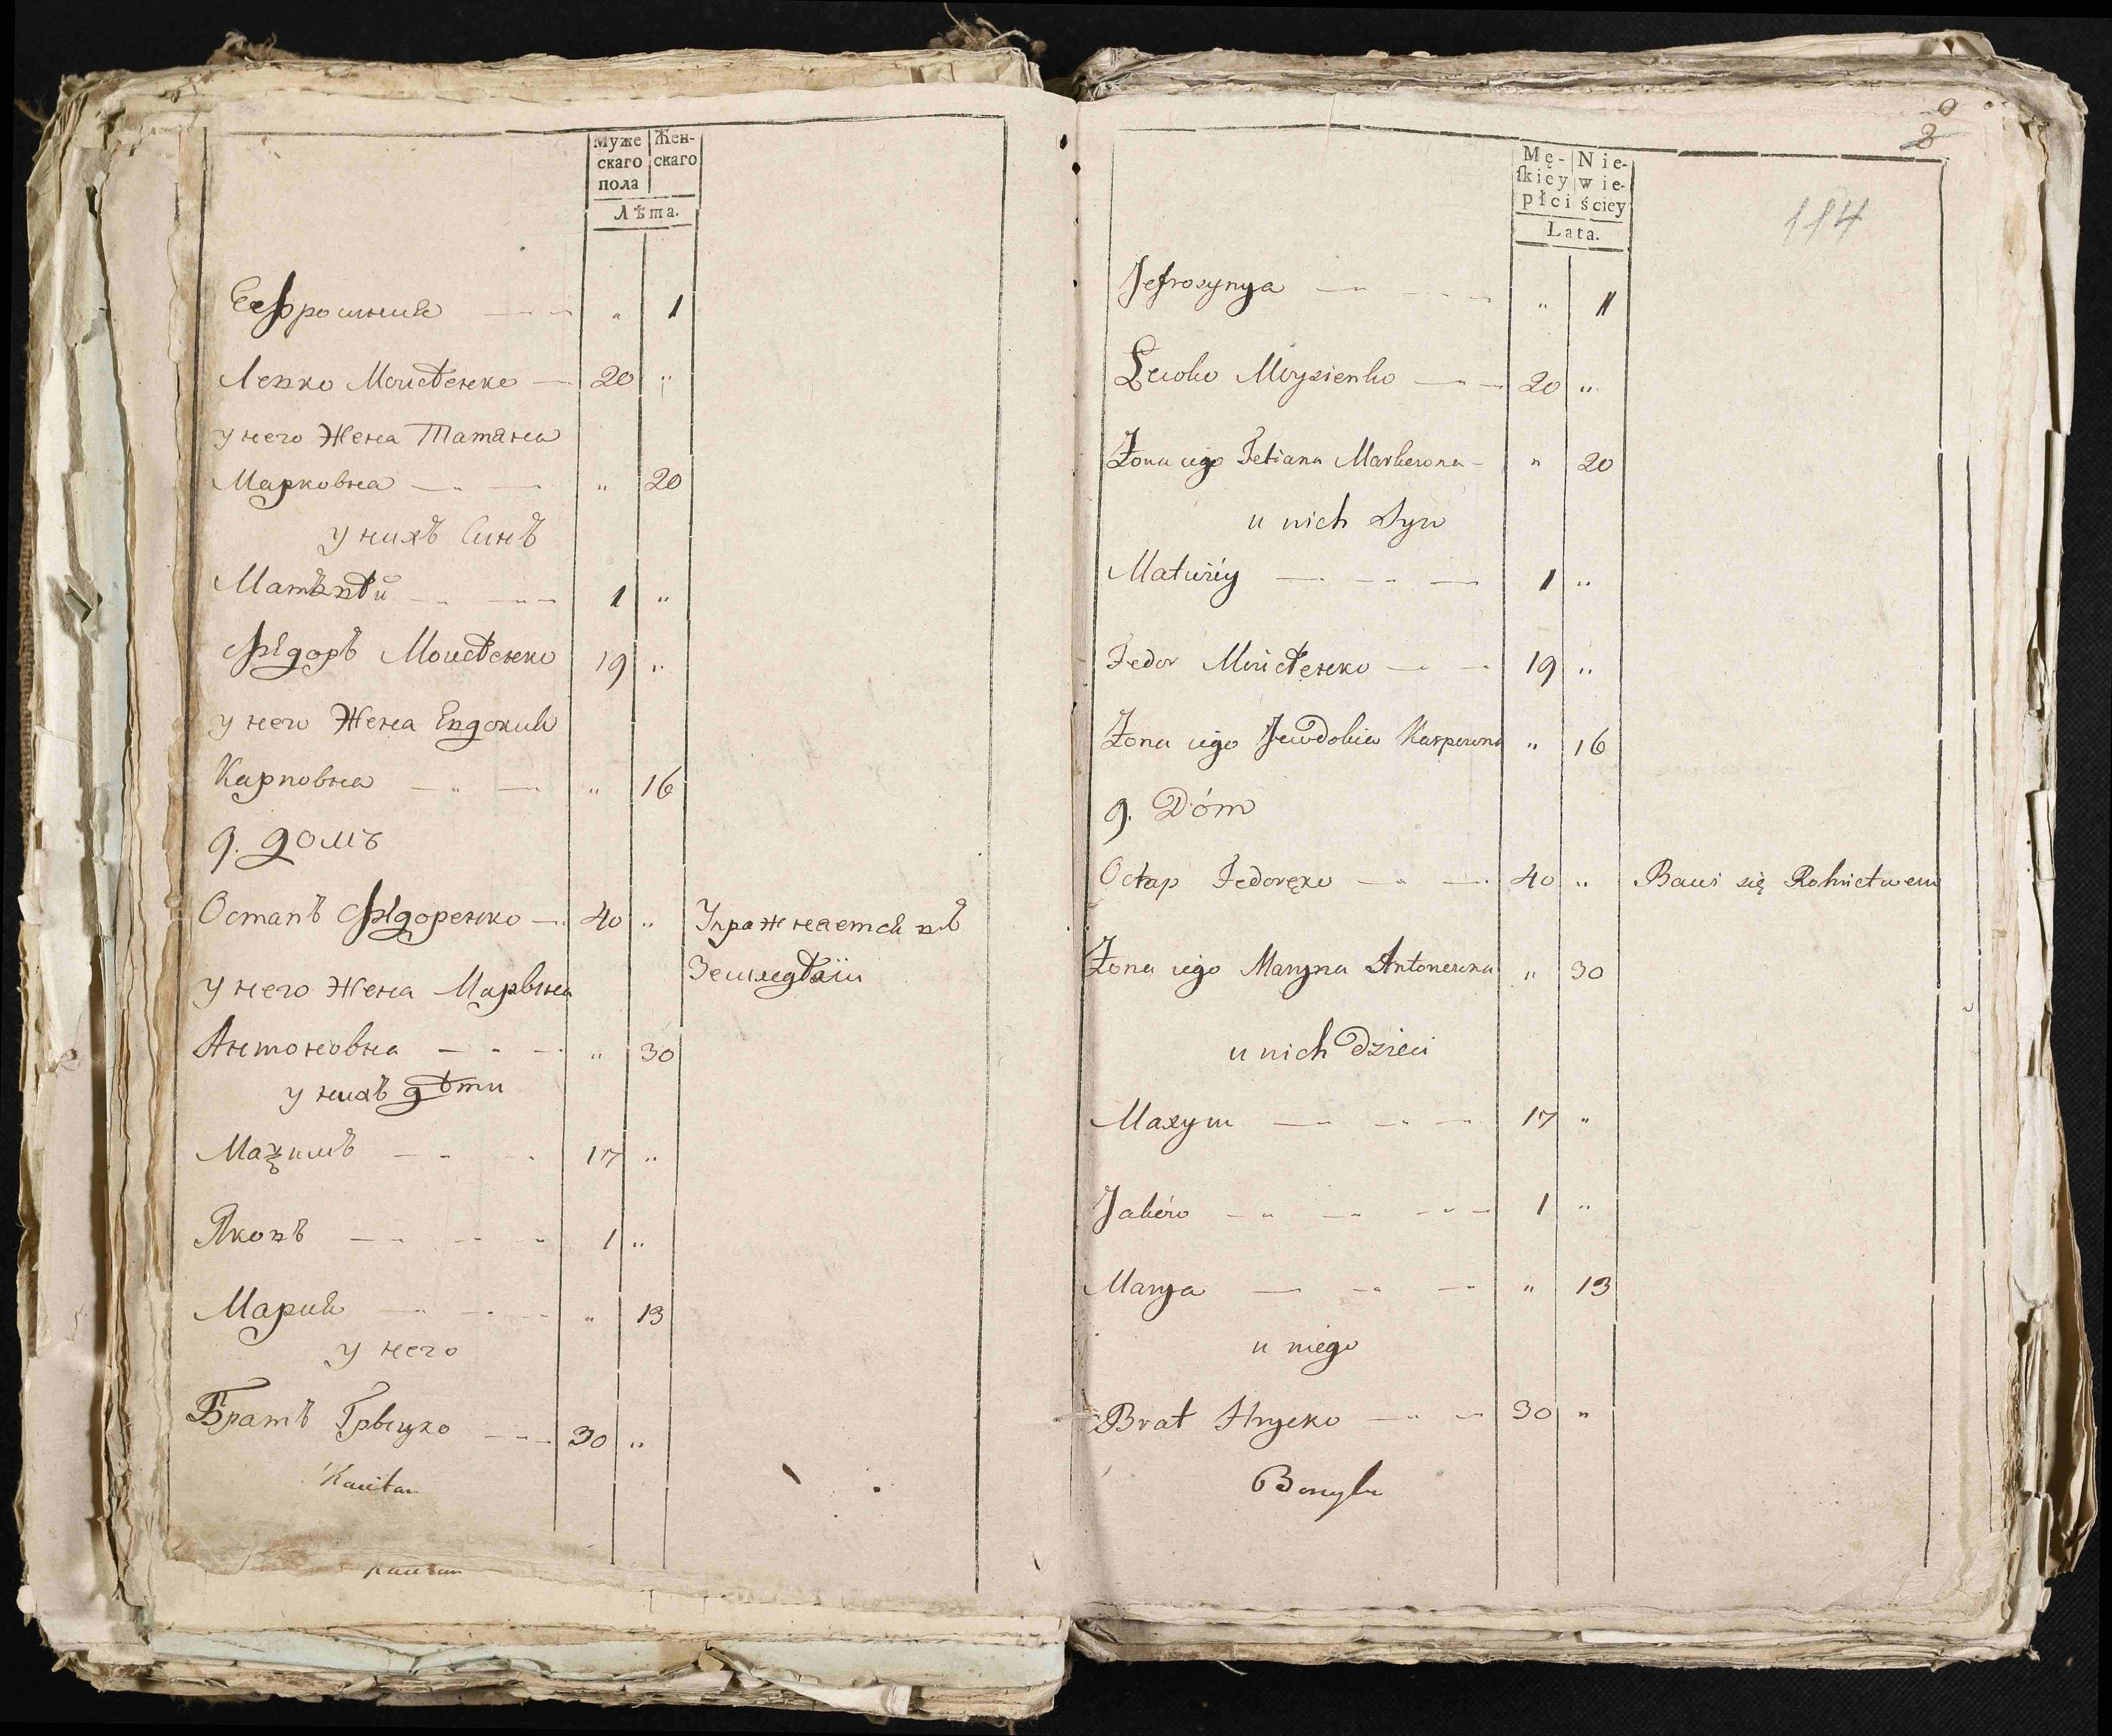 Муже
скаго
пола
Жен-
скаго
Лѣта.
Еефросиния — " 1
Левко Моисѣенко — 20 "
у него Жена Татяна
Марковна — " 20
у нихъ Синъ
Матвѣй — 1 "
Фѣдоръ Моисѣенко 19 "
у него Жена Евдокия
Карповна — " 16
9. домъ
Остапъ Фѣдоренко — 40 " Упражнается въ
Земледѣлїи
у него Жена Марына
Антоновна — " 30
у нихъ дѣти
Маѯимъ — 17 "
Яковъ — 1 "
Мария — " 13
у него
Братъ Грыцко — 30 "
8
114
Mę-
ſkiey
płci
Nie-
wie-
ściey
Lata.
Jefrosynya — " 1
Lewko Moysienko — 20 "
Żona iego Tetiana Markowna — " 20
u nich Syn
Matwiéy — 1 "
Fedor Моисѣенко — 19 "
Żona iego Jewdokia Karpowna " 16
9. Dóm
Ostap Fedoręko — 40 " Bawi się Rolnictwem
Żona iego Maryna Antonowna " 30
u nich Dzieci
Maxym — 17 "
Jaków — 1 "
Marya — " 13
u niego
Brat Hrycko — 30 "